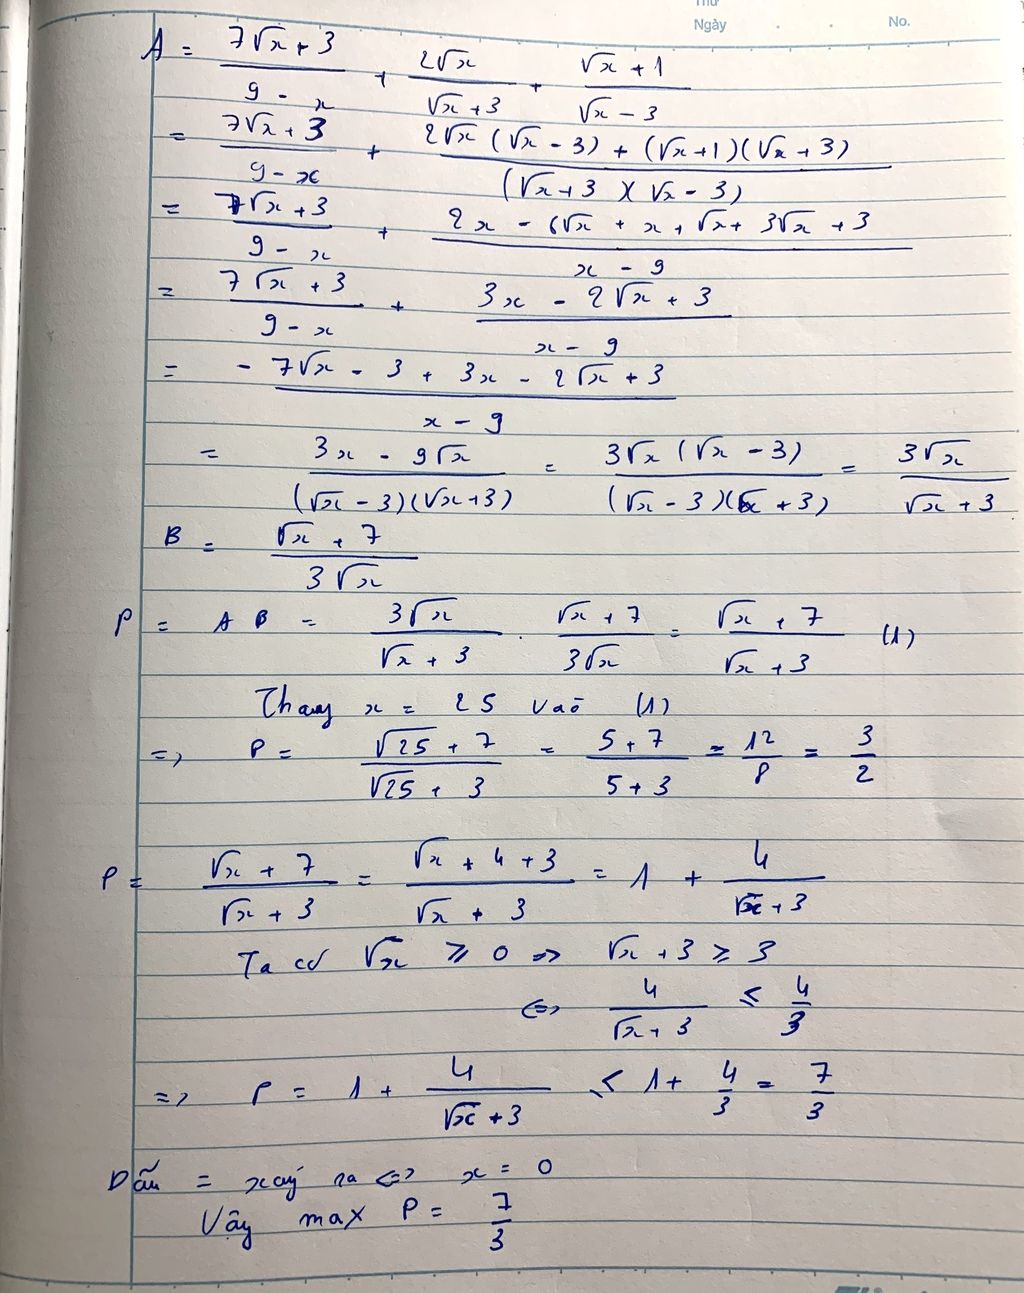 Thứ
Ngày . . No.
A = (7√x + 3)/(9 - x) + (2√x)/(√x + 3) + (√x + 1)/(√x - 3)
= (7√x + 3)/(9 - x) + (2√x (√x - 3) + (√x + 1)(√x + 3))/((√x + 3)(√x - 3))
= (7√x + 3)/(9 - x) + (2x - 6√x + x + √x + 3√x + 3)/(x - 9)
= (7√x + 3)/(9 - x) + (3x - 2√x + 3)/(x - 9)
= (-7√x - 3 + 3x - 2√x + 3)/(x - 9)
= (3x - 9√x)/((√x - 3)(√x + 3)) = (3√x (√x - 3))/((√x - 3)(√x + 3)) = (3√x)/(√x + 3)
B = (√x + 7)/(3√x)
P = A B = (3√x)/(√x + 3) . (√x + 7)/(3√x) = (√x + 7)/(√x + 3) (1)
Thay x = 25 vào (1)
=> P = (√25 + 7)/(√25 + 3) = (5 + 7)/(5 + 3) = 12/8 = 3/2
P = (√x + 7)/(√x + 3) = (√x + 4 + 3)/(√x + 3) = 1 + 4/(√x + 3)
Ta có √x ≥ 0 => √x + 3 ≥ 3
<=> 4/(√x + 3) ≤ 4/3
=> P = 1 + 4/(√x + 3) ≤ 1 + 4/3 = 7/3
Dấu = xảy ra <=> x = 0
Vậy max P = 7/3